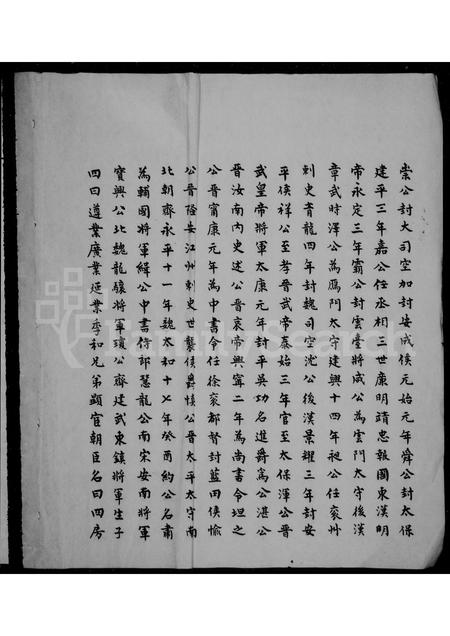 崇公封大司空加封安成侯元始元年舜公封太保
建平三年嘉公任丞相三世廉明靖忠報國東漢明
帝永定三年霸公封雲臺將成公為雲門太守後漢
章武時澤公為鴈門太守建興十四年昶公任兗州
刺史青龍四年封魏司空沈公後漢景耀三年封安
平侯祥公至孝晉武帝泰始三年官至太保渾公晉
武皇帝將軍太康元年封平吳功名進爵為公湛公
晉汝南內史述公晉哀帝興寧二年為尚書令坦之
公晉寗康元年為中書令任徐兗都督封藍田侯愉
公晉陰安江州刺史世襲侯爵慎公晉太平太守南
北朝齊永平十一年魏太和十七年癸酉約公名肅
為輔國將軍緝公中書侍郎慧龍公南宋安南將軍
寶興公北魏龍驤將軍瓊公齋建武東鎮將軍生子
四曰遵業廣業延業季和兄弟顯宦朝臣名曰四房
FamilySearch